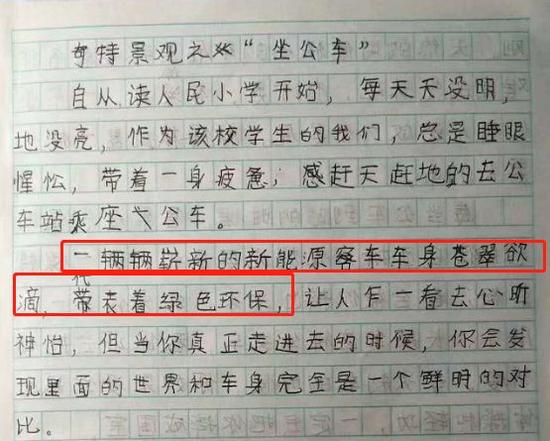 奇特景观之“坐公车”
自从读人民小学开始，每天天没明，
地没亮，作为该校学生的我们，总是睡眼
惺忪，带着一身疲惫，感赶天赶地的去公
车站乘座公车。
一辆辆崭新的新能源客车车身苍翠欲
滴，代表着绿色环保，让人乍一看去心旷
神怡，但当你真正走进去的时候，你会发
现里面的世界和车身完全是一个鲜明的对
比。